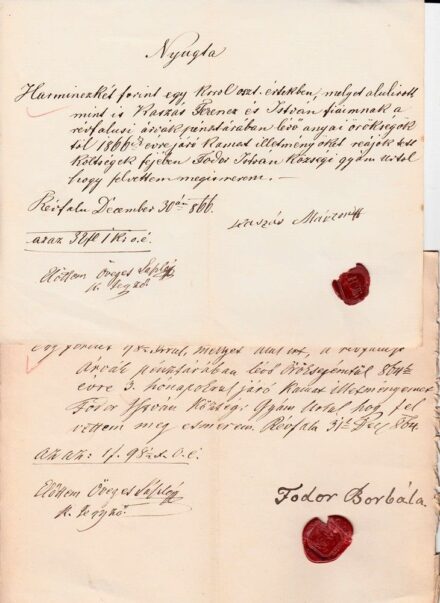 Nyugta
Harminczkét forint egy krrol oszt. értékben, melyet alulirott
mint is Kaszás Ferencz és István fiaimnak a
révfalusi árvák pénztárában lévő anyai örökségök
től 1866 évre járó Kamat illetményöket reájok tett
költségek fejében Fodor István Községi gyám úrtól
hogy felvettem megismerem. —
Révfalu December 30án 866.
Kaszás Márton
azaz 32 ft 1 Kr o. é.
Előttem Öveges
k. jegyző
Egy forint 98 melyet alul irt, a révfalusi
Árvák pénztárában levő örökségemtől 864
évre 3. hónapokra járó Kamat illetményemet
Fodor István Községi Gyám úrtol hogy fel
vettem meg esmerem. Révfalu 31 Dec 864.
az az: 1 f. 98 o. é.
Előttem Öveges
k. jegyző
Fodor Borbála.